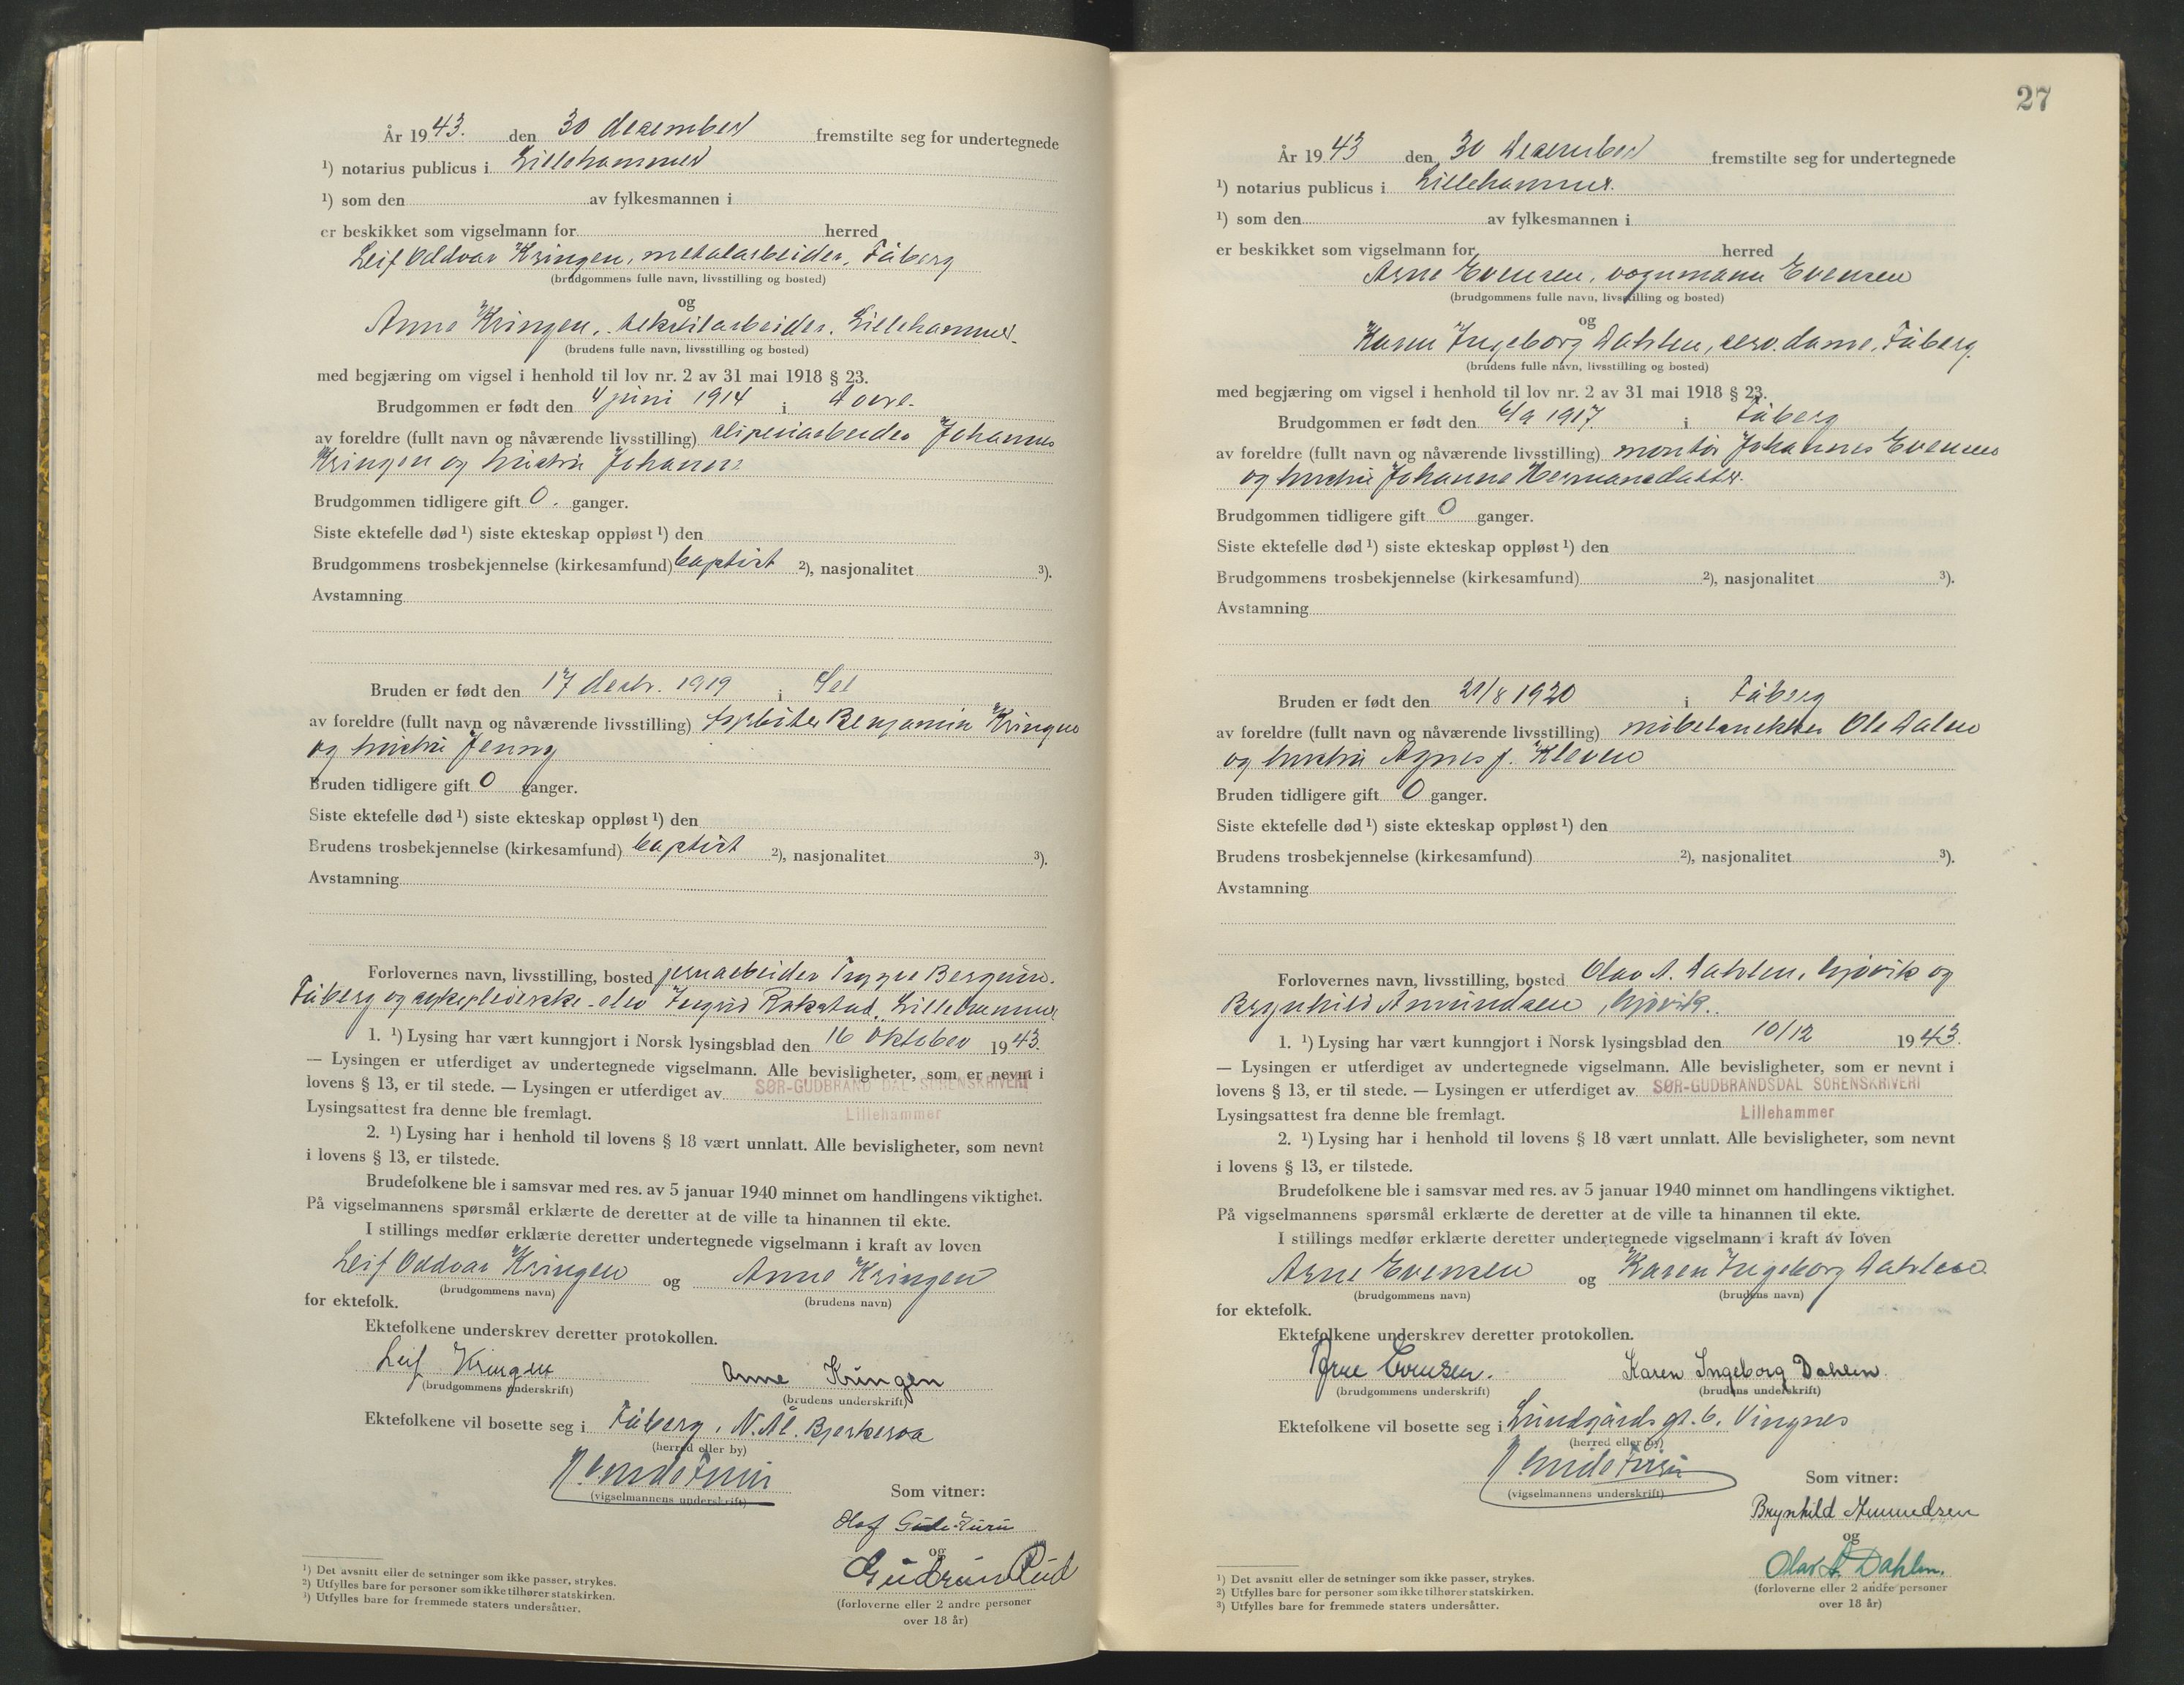 År 1943. den 30 desember fremstilte seg for undertegnede
¹) notarius publicus i Lillehammer
¹) som den av fylkesmannen i
er beskikket som vigselmann for herred
Leif Oddvar Kringen, metalarbeider, Fåberg
(brudgommens fulle navn, livsstilling og bosted)
og
Anne Kringen, tekstilarbeider, Lillehammer.
(brudens fulle navn, livsstilling og bosted)
med begjæring om vigsel i henhold til lov nr. 2 av 31 mai 1918 § 23.
Brudgommen er født den 4 juni 1914 i Dovre.
av foreldre (fullt navn og nåværende livsstilling) sliperiarbeider Johannes
Kringen og hustru Johanne
Brudgommen tidligere gift 0. ganger.
Siste ektefelle død ¹) siste ekteskap oppløst ¹) den
Brudgommens trosbekjennelse (kirkesamfund) baptist ²), nasjonalitet ³).
Avstamning
Bruden er født den 17 desbr. 1919 i Sel
av foreldre (fullt navn og nåværende livsstilling) Benjamin Kringen
og hustru Jenny
Bruden tidligere gift 0 ganger.
Siste ektefelle død ¹) siste ekteskap oppløst ¹) den
Brudens trosbekjennelse (kirkesamfund) baptist ²), nasjonalitet ³).
Avstamning
Forlovernes navn, livsstilling, bosted jernarbeider Trygve Bergum.
Fåberg og sykepleierske-elev Ingrid Lillehammer
1. ¹) Lysing har vært kunngjort i Norsk lysingsblad den 16 oktober 1943.
— Lysingen er utferdiget av undertegnede vigselmann. Alle bevisligheter, som er nevnt i
lovens § 13, er til stede. — Lysingen er utferdiget av SØR-GUDBRANDSDAL SORENSKRIVERI
Lysingsattest fra denne ble fremlagt. Lillehammer
2. ¹) Lysing har i henhold til lovens § 18 vært unnlatt. Alle bevisligheter, som nevnt
i lovens § 13, er tilstede.
Brudefolkene ble i samsvar med res. av 5 januar 1940 minnet om handlingens viktighet.
På vigselmannens spørsmål erklærte de deretter at de ville ta hinannen til ekte.
I stillings medfør erklærte deretter undertegnede vigselmann i kraft av loven
Leif Oddvar Kringen og Anne Kringen
(brudgommens navn) (brudens navn)
for ektefolk.
Ektefolkene underskrev deretter protokollen.
Leif Kringen Anne Kringen
(brudgommens underskrift) (brudens underskrift)
Ektefolkene vil bosette seg i Fåberg, N. Ål. Bjerkeroa
(herred eller by)
(vigselmannens underskrift)
Som vitner:
Olaf
og
Gudrun Rud
(forloverne eller 2 andre personer
over 18 år)
¹) Det avsnitt eller de setninger som ikke passer, strykes.
²) Utfylles bare for personer som ikke tilhører statskirken.
³) Utfylles bare for fremmede staters undersåtter.
27
År 1943 den 30 desember fremstilte seg for undertegnede
¹) notarius publicus i Lillehammer.
¹) som den av fylkesmannen i
er beskikket som vigselmann for herred
Arne Evensen, vognmann Evensen
(brudgommens fulle navn, livsstilling og bosted)
og
Karen Ingeborg Dahlen, serv.dame, Fåberg.
(brudens fulle navn, livsstilling og bosted)
med begjæring om vigsel i henhold til lov nr. 2 av 31 mai 1918 § 23.
Brudgommen er født den 6/9 1917 i Fåberg
av foreldre (fullt navn og nåværende livsstilling) montør Johannes Evensen
og hustru Johanne Hermansdatter.
Brudgommen tidligere gift 0 ganger.
Siste ektefelle død ¹) siste ekteskap oppløst ¹) den
Brudgommens trosbekjennelse (kirkesamfund) ²), nasjonalitet ³).
Avstamning
Bruden er født den 21/8 1920 i Fåberg
av foreldre (fullt navn og nåværende livsstilling) møbelsnekker Ole Dalen
og hustru Agnes f. Kleven
Bruden tidligere gift 0 ganger.
Siste ektefelle død ¹) siste ekteskap oppløst ¹) den
Brudens trosbekjennelse (kirkesamfund) ²), nasjonalitet ³).
Avstamning
Forlovernes navn, livsstilling, bosted Olav A. Dahlen, Gjøvik og
Brynhild Amundsen, Gjøvik.
1. ¹) Lysing har vært kunngjort i Norsk lysingsblad den 10/12 1943.
— Lysingen er utferdiget av undertegnede vigselmann. Alle bevisligheter, som er nevnt i
lovens § 13, er til stede. — Lysingen er utferdiget av SØR-GUDBRANDSDAL SORENSKRIVERI
Lysingsattest fra denne ble fremlagt. Lillehammer
2. ¹) Lysing har i henhold til lovens § 18 vært unnlatt. Alle bevisligheter, som nevnt
i lovens § 13, er tilstede.
Brudefolkene ble i samsvar med res. av 5 januar 1940 minnet om handlingens viktighet.
På vigselmannens spørsmål erklærte de deretter at de ville ta hinannen til ekte.
I stillings medfør erklærte deretter undertegnede vigselmann i kraft av loven
Arne Evensen og Karen Ingeborg Dahlen
(brudgommens navn) (brudens navn)
for ektefolk.
Ektefolkene underskrev deretter protokollen.
Arne Evensen. Karen Ingeborg Dahlen.
(brudgommens underskrift) (brudens underskrift)
Ektefolkene vil bosette seg i Lundgårds gt. 6. Vingnes
(herred eller by)
(vigselmannens underskrift)
Som vitner:
Brynhild Amundsen
og
Olav A. Dahlen.
(forloverne eller 2 andre personer
over 18 år)
¹) Det avsnitt eller de setninger som ikke passer, strykes.
²) Utfylles bare for personer som ikke tilhører statskirken.
³) Utfylles bare for fremmede staters undersåtter.